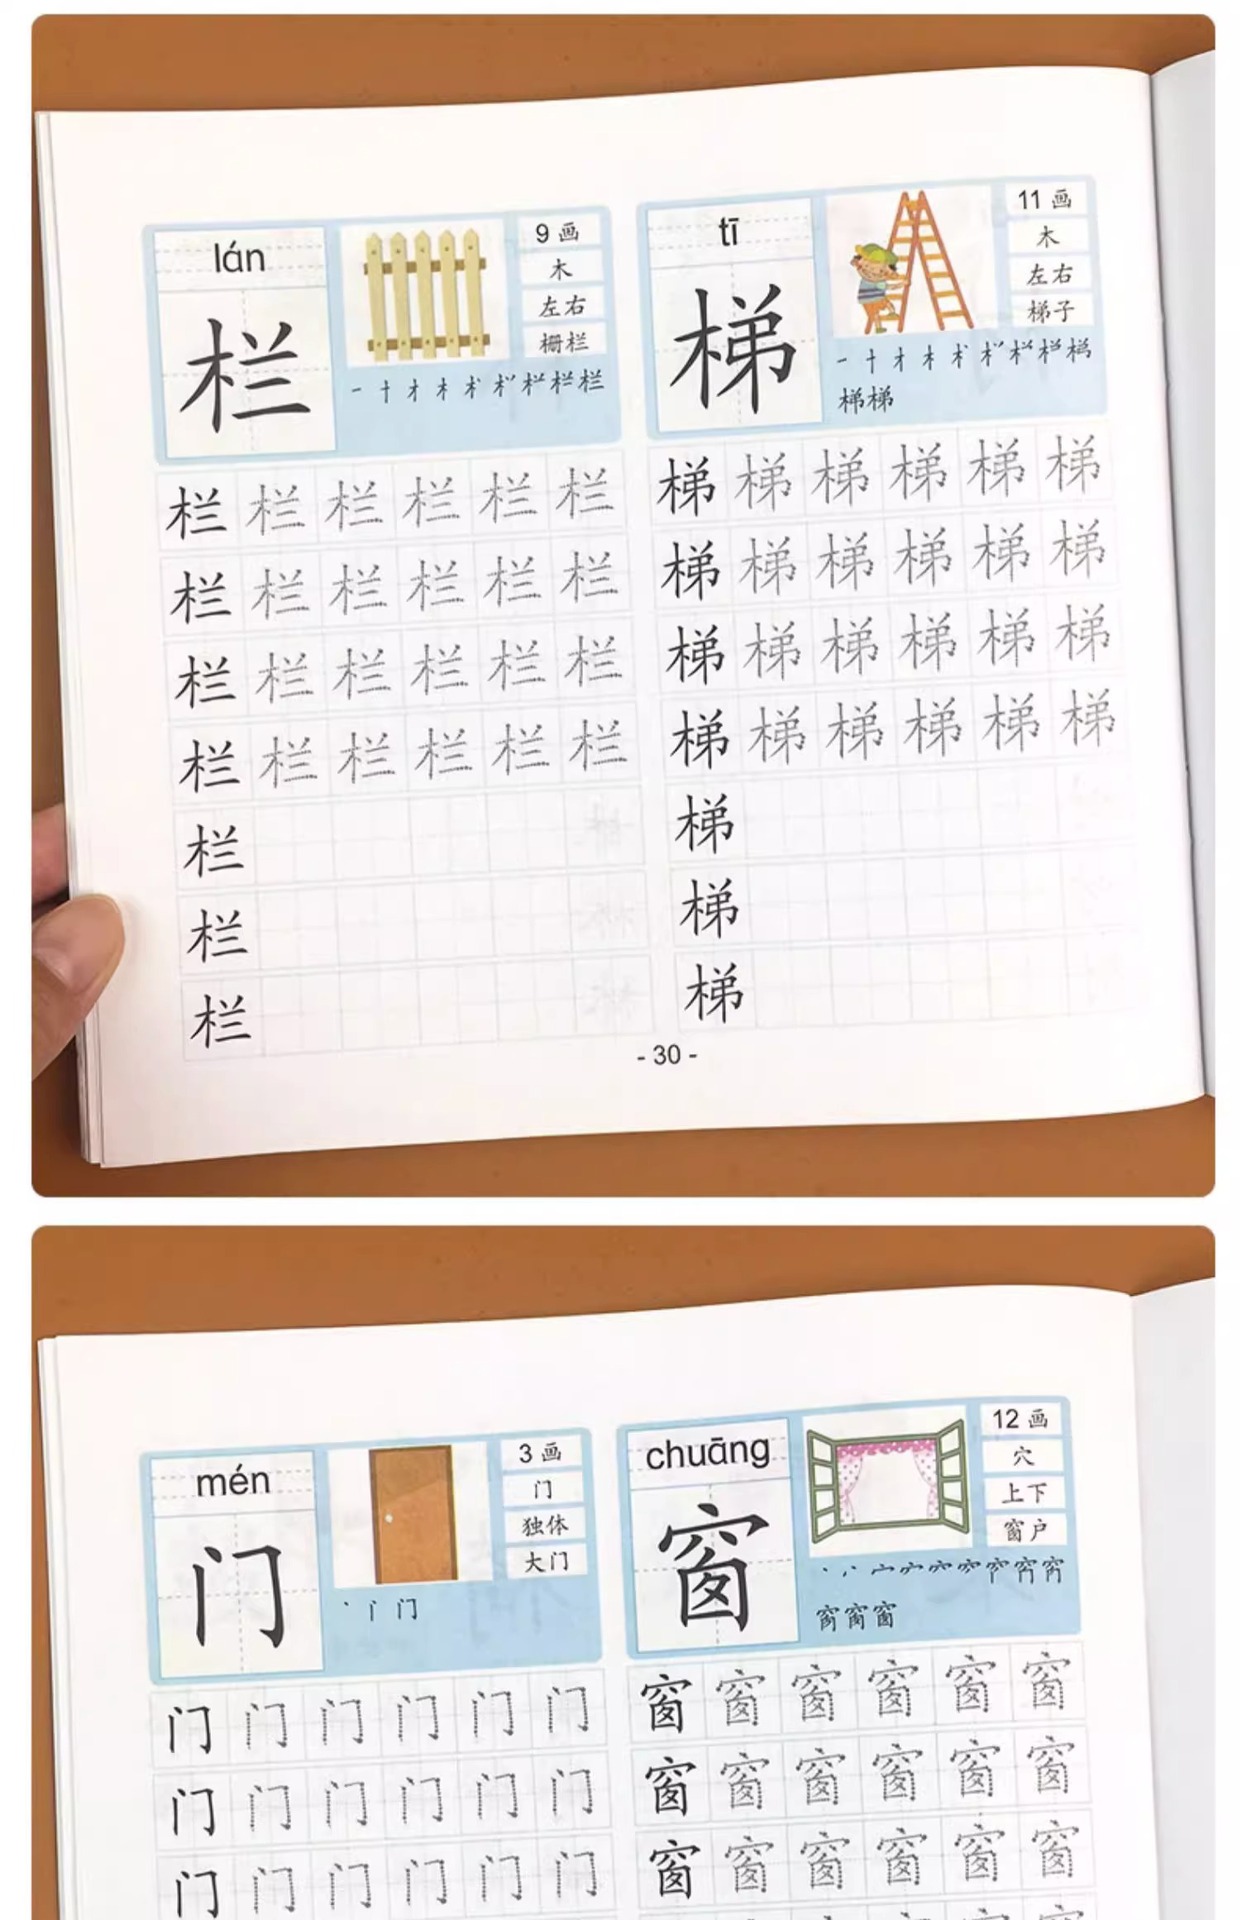 lán
栏
9 画
木
左右
栅栏
tī
梯
11 画
木
左右
梯子
梯梯
栏 栏 栏 栏 栏 栏
栏 栏 栏 栏 栏 栏
栏 栏 栏 栏 栏 栏
栏 栏 栏 栏 栏 栏
栏
栏
栏
梯 梯 梯 梯 梯 梯
梯 梯 梯 梯 梯 梯
梯 梯 梯 梯 梯 梯
梯 梯 梯 梯 梯 梯
梯
梯
梯
- 30 -
mén
门
3 画
门
独体
大门
丶 丨 门
chuāng
窗
12 画
穴
上下
窗户
门 门 门 门 门 门
门 门 门 门 门 门
门 门 门 门 门 门
窗 窗 窗 窗 窗 窗
窗 窗 窗 窗 窗 窗
窗 窗 窗 窗 窗 窗